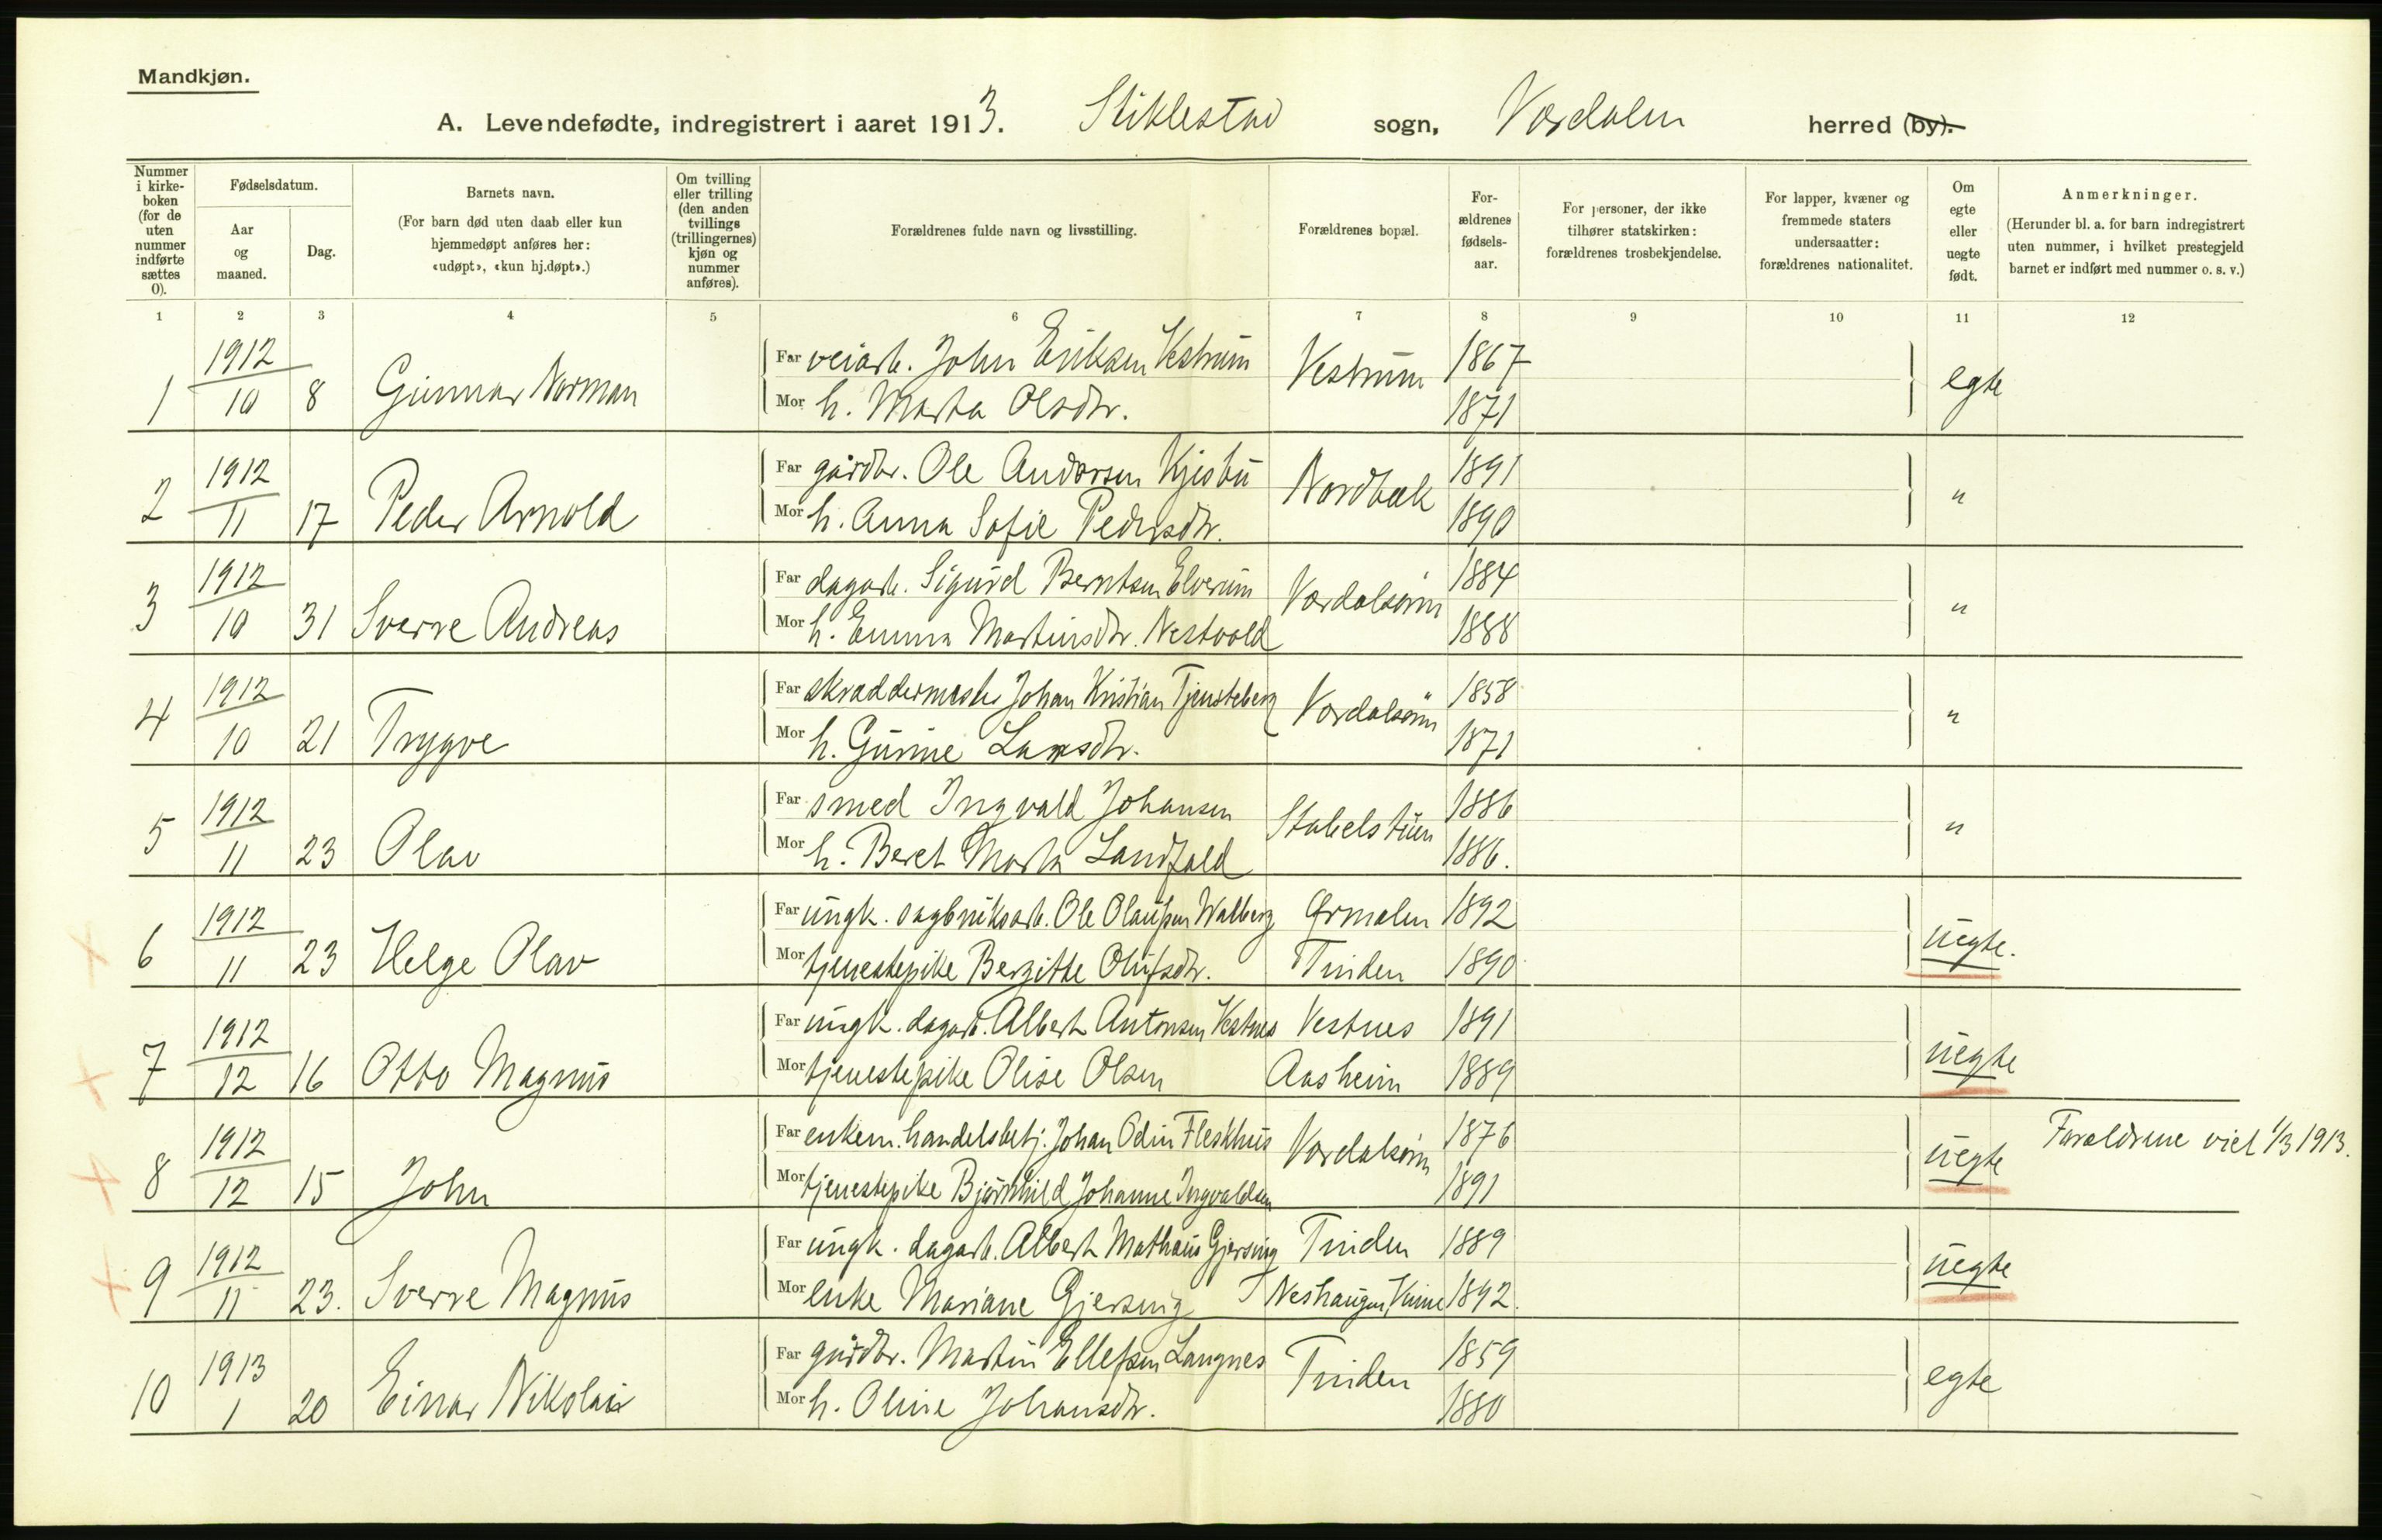 Mandkjøn.
A. Levendefødte, indregistrert i aaret 1913. Stiklestad sogn, Værdalen herred (by).
Nummer i kirkeboken (for de uten nummer indførte sættes 0).
Fødselsdatum.
Aar og maaned.
Dag.
Barnets navn.
(For barn død uten daab eller kun hjemmedøpt anføres her: «udøpt», «kun hj.døpt».)
Om tvilling eller trilling (den anden tvillings (trillingernes) kjøn og nummer anføres).
Forældrenes fulde navn og livsstilling.
Forældrenes bopæl.
Forældrenes fødselsaar.
For personer, der ikke tilhører statskirken: forældrenes trosbekjendelse.
For lapper, kvæner og fremmede staters undersaatter: forældrenes nationalitet.
Om egte eller uegte født.
Anmerkninger.
(Herunder bl. a. for barn indregistrert uten nummer, i hvilket prestegjeld barnet er indført med nummer o. s. v.)
1 2 3 4 5 6 7 8 9 10 11 12
1 1912 10 8 Gunnar Norman Far veiarb. John Eriksen Vestrum Vestrum 1867 egte
Mor h. Marta Olsdtr. 1871
2 1912 11 17 Peder Arnold Far gårdbr. Ole Andersen Kjesbu Nordbæk 1891 "
Mor h. Anna Sofie Pedersdtr. 1890
3 1912 10 31 Sverre Andreas Far dagarb. Sigurd Berntsen Elverum Værdalsøren 1884 "
Mor h. Emma Martinsdtr. Nestvold 1888
4 1912 10 21 Trygve Far skræddermester Johan Kristian Tjensteberg Værdalsøren 1858 "
Mor h. Gurine Larsdtr. 1871
5 1912 11 23 Olav Far smed Ingvald Johansen Stabelstuen 1886 "
Mor h. Beret Marta Landfald 1886.
6 1912 11 23 Helge Olav Far ungk. sagbruksarb. Ole Olaussen Walberg Ørmelen 1892 uegte.
Mor tjenestepike Bergitte Olufsdtr. Tinden 1890
7 1912 12 16 Otto Magnus Far ungk. dagarb. Albert Antonsen Vestnes Vestnes 1891 uegte
Mor tjenestepike Olise Olsen Aasheim 1889
8 1912 12 15 John Far enkem. handelsbetj. Johan Odin Fleskhus Værdalsøren 1876 uegte Forældrene viet 1/3 1913.
Mor tjenestepike Bjørnhild Johanne Ingvaldsen 1891
9 1912 11 23. Sverre Magnus Far ungk. dagarb. Albert Mathæus Gjersing Tinden 1889 uegte
Mor enke Mariane Gjersing Neshaugen, Vinne 1892.
10 1913 1 20 Einar Nikolai Far gårdbr. Martin Ellefsen Langnes Tinden 1859 egte
Mor h. Oline Johansdtr. 1880